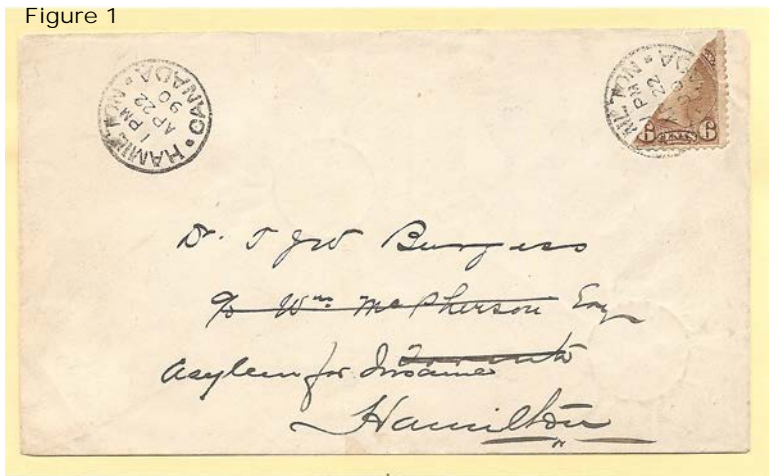 Figure 1
HAMILTON • CANADA •
1 PM
AP 22
90
1 PM
22
6 6
Dr. T J W Burgess
c/o Wm McPherson Esq
Asylum for Insane Toronto
Hamilton